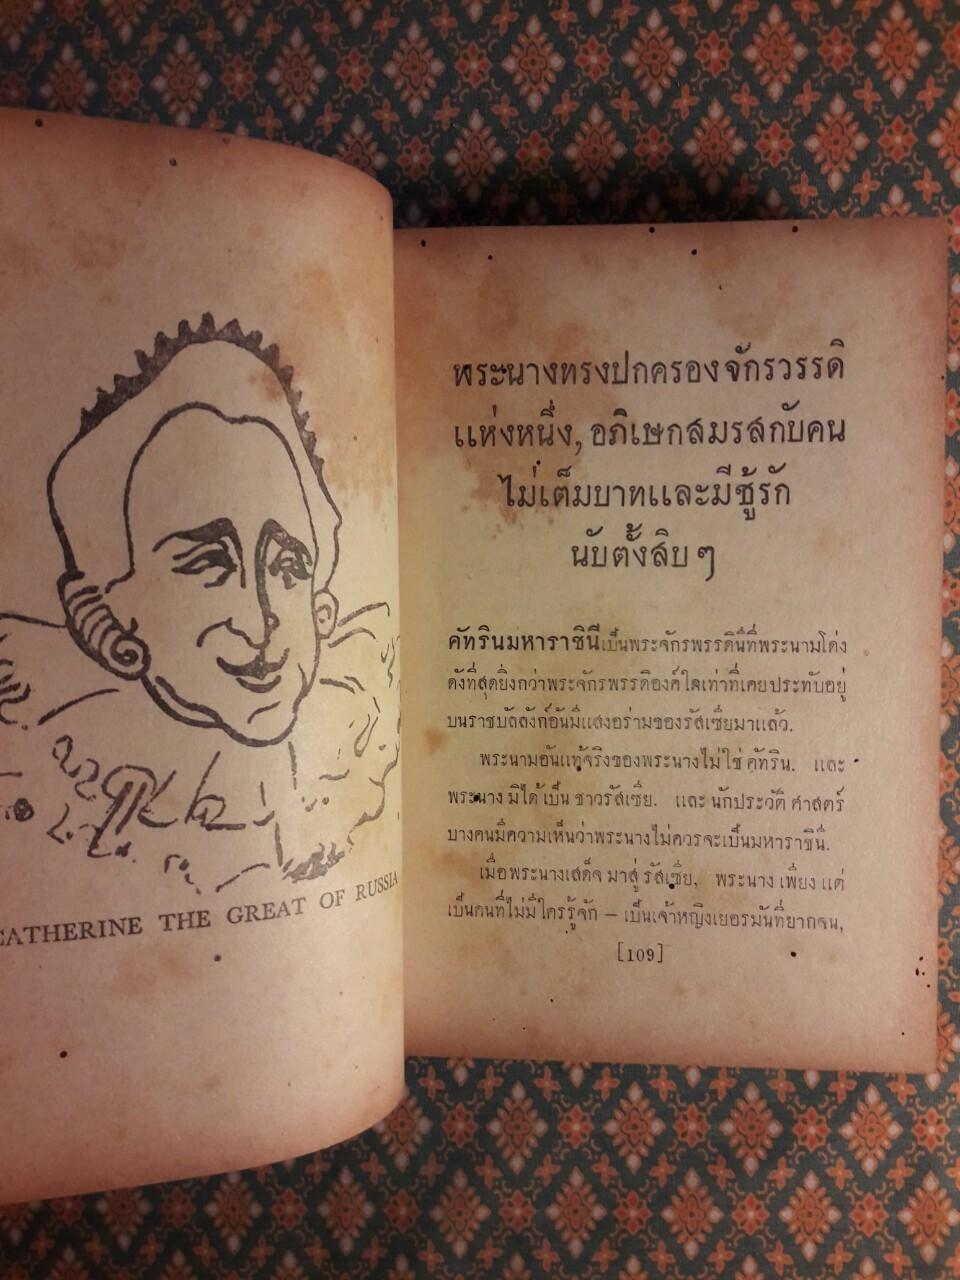 CATHERINE THE GREAT OF RUSSIA
พระนางทรงปกครองจักรวรรดิ
แห่งหนึ่ง, อภิเษกสมรสกับคน
ไม่เต็มบาทและมีชู้รัก
นับตั้งสิบ ๆ
คัทรินมหาราชินีเป็นพระจักรพรรดินีที่พระนามโด่ง
ดังที่สุดยิ่งกว่าพระจักรพรรดิองค์ใดเท่าที่เคยประทับอยู่
บนราชบัลลังก์อันมีแสงอร่ามของรัสเซียมาแล้ว.
พระนามอันแท้จริงของพระนางไม่ใช่ คัทริน. และ
พระนาง มิได้ เป็น ชาวรัสเซีย. และ นักประวัติ ศาสตร์
บางคนมีความเห็นว่าพระนางไม่ควรจะเป็นมหาราชินี.
เมื่อพระนางเสด็จ มาสู่ รัสเซีย, พระนาง เพียง แต่
เป็นคนที่ไม่มีใครรู้จัก — เป็นเจ้าหญิงเยอรมันที่ยากจน,
[109]